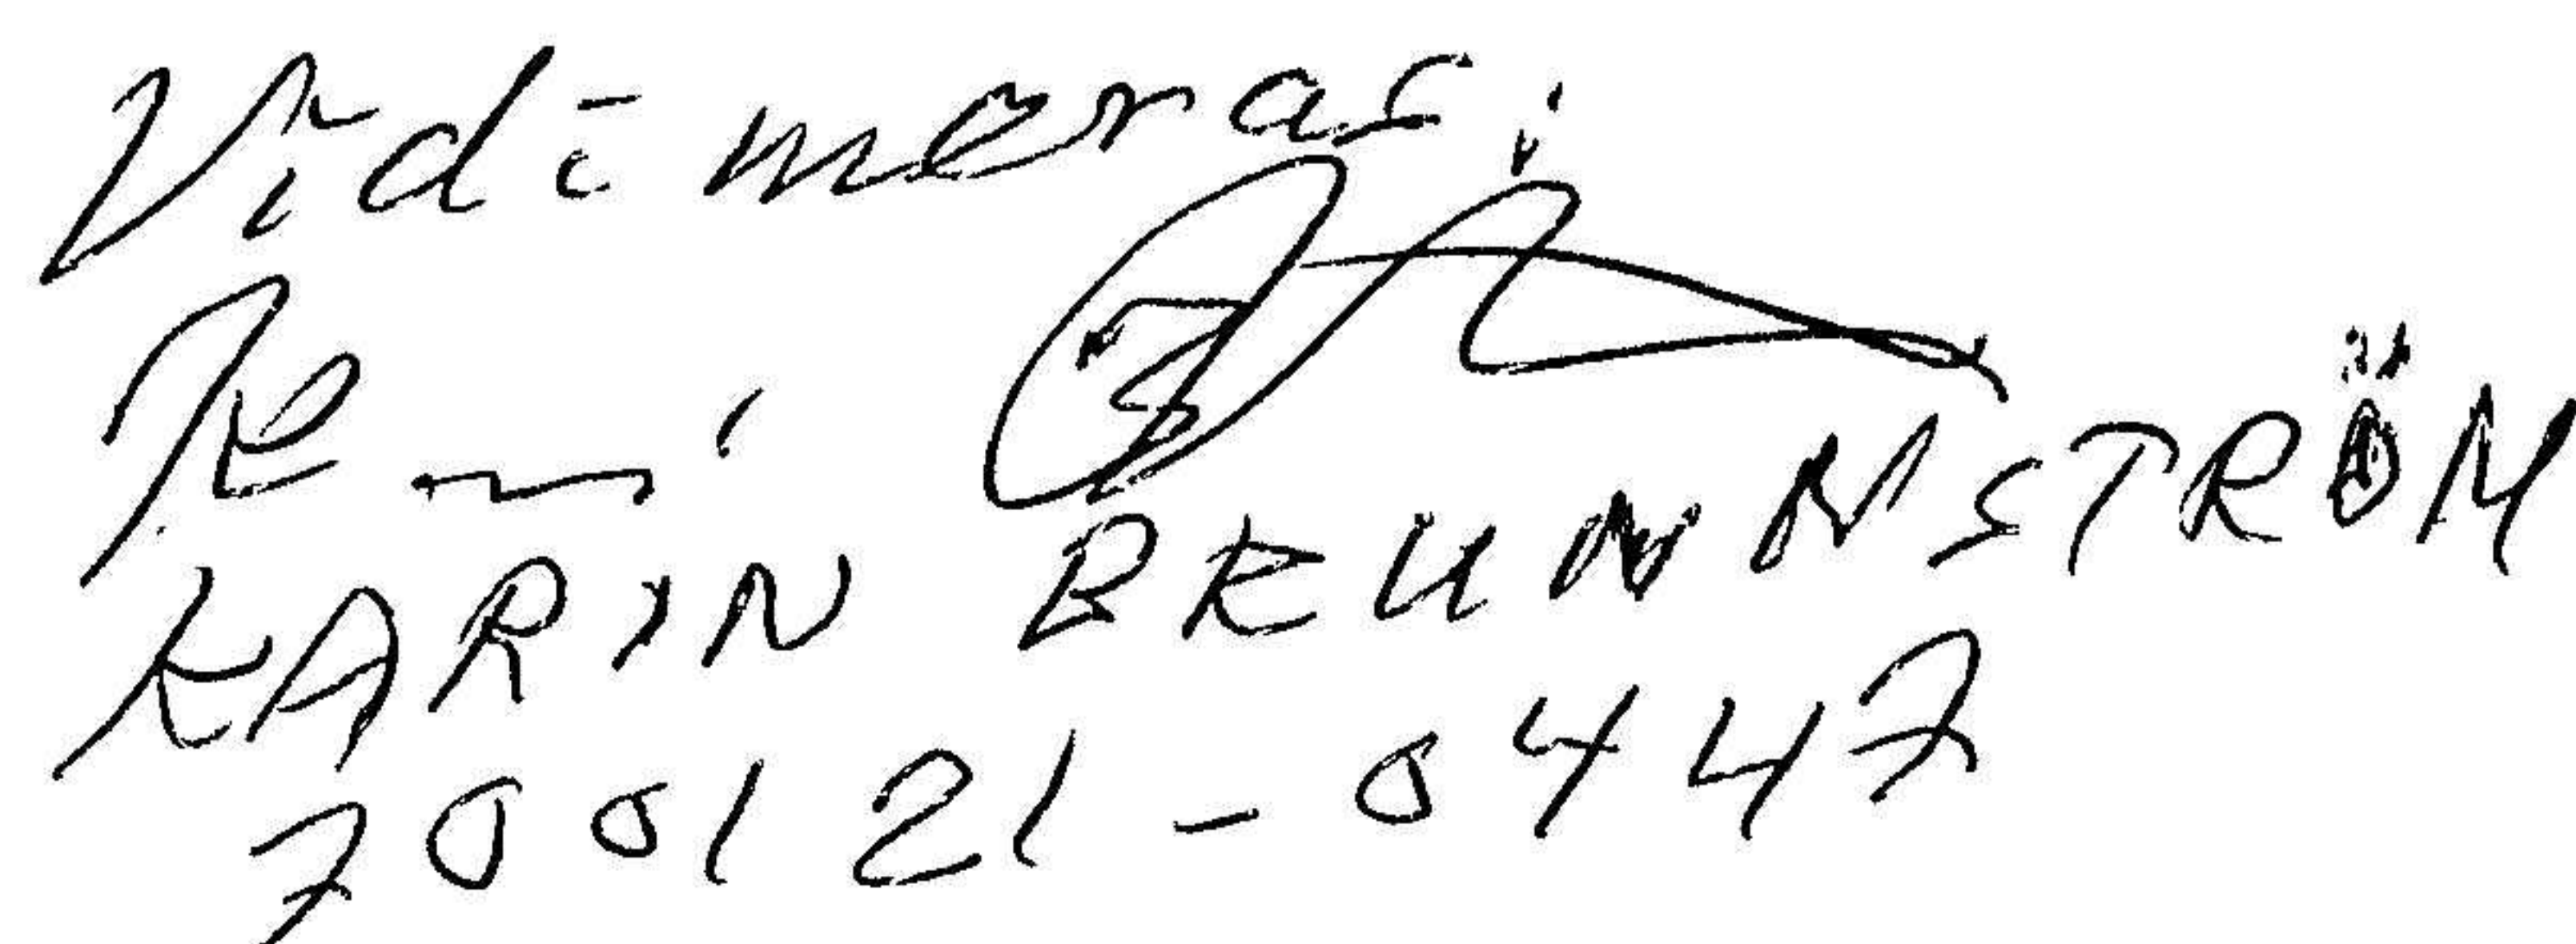 Vidimeras:
KARIN BRUNNSTRÖM
700121-0447